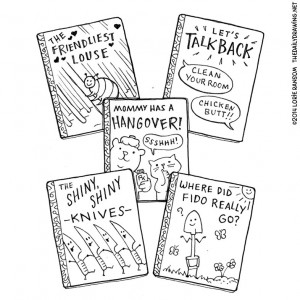 THE
FRIENDLIEST
LOUSE
LET'S
TALK BACK
CLEAN
YOUR ROOM
CHICKEN
BUTT!!
MOMMY HAS A
HANGOVER!
SSSHHH!
THE
SHINY, SHINY
KNIVES
WHERE DID
FIDO REALLY
GO?
©2014 LORIE RANSOM THEDAILYDRAWING.NET